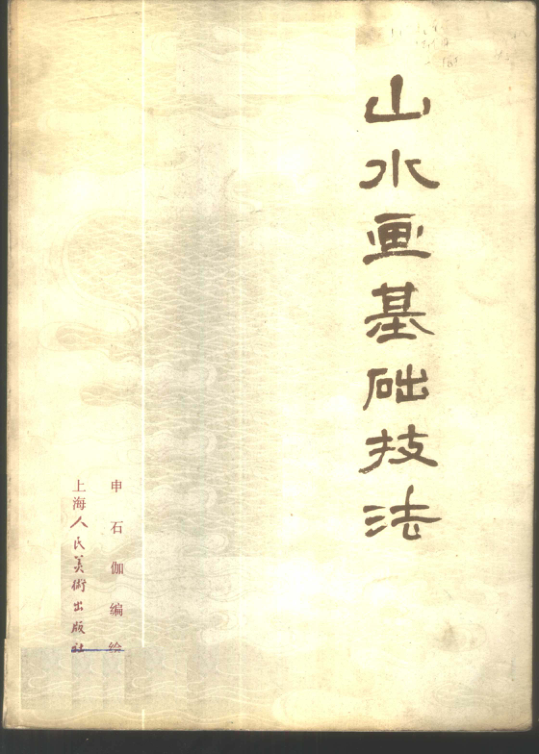 山水画基础技法
申石伽编绘
上海人民美術出版社